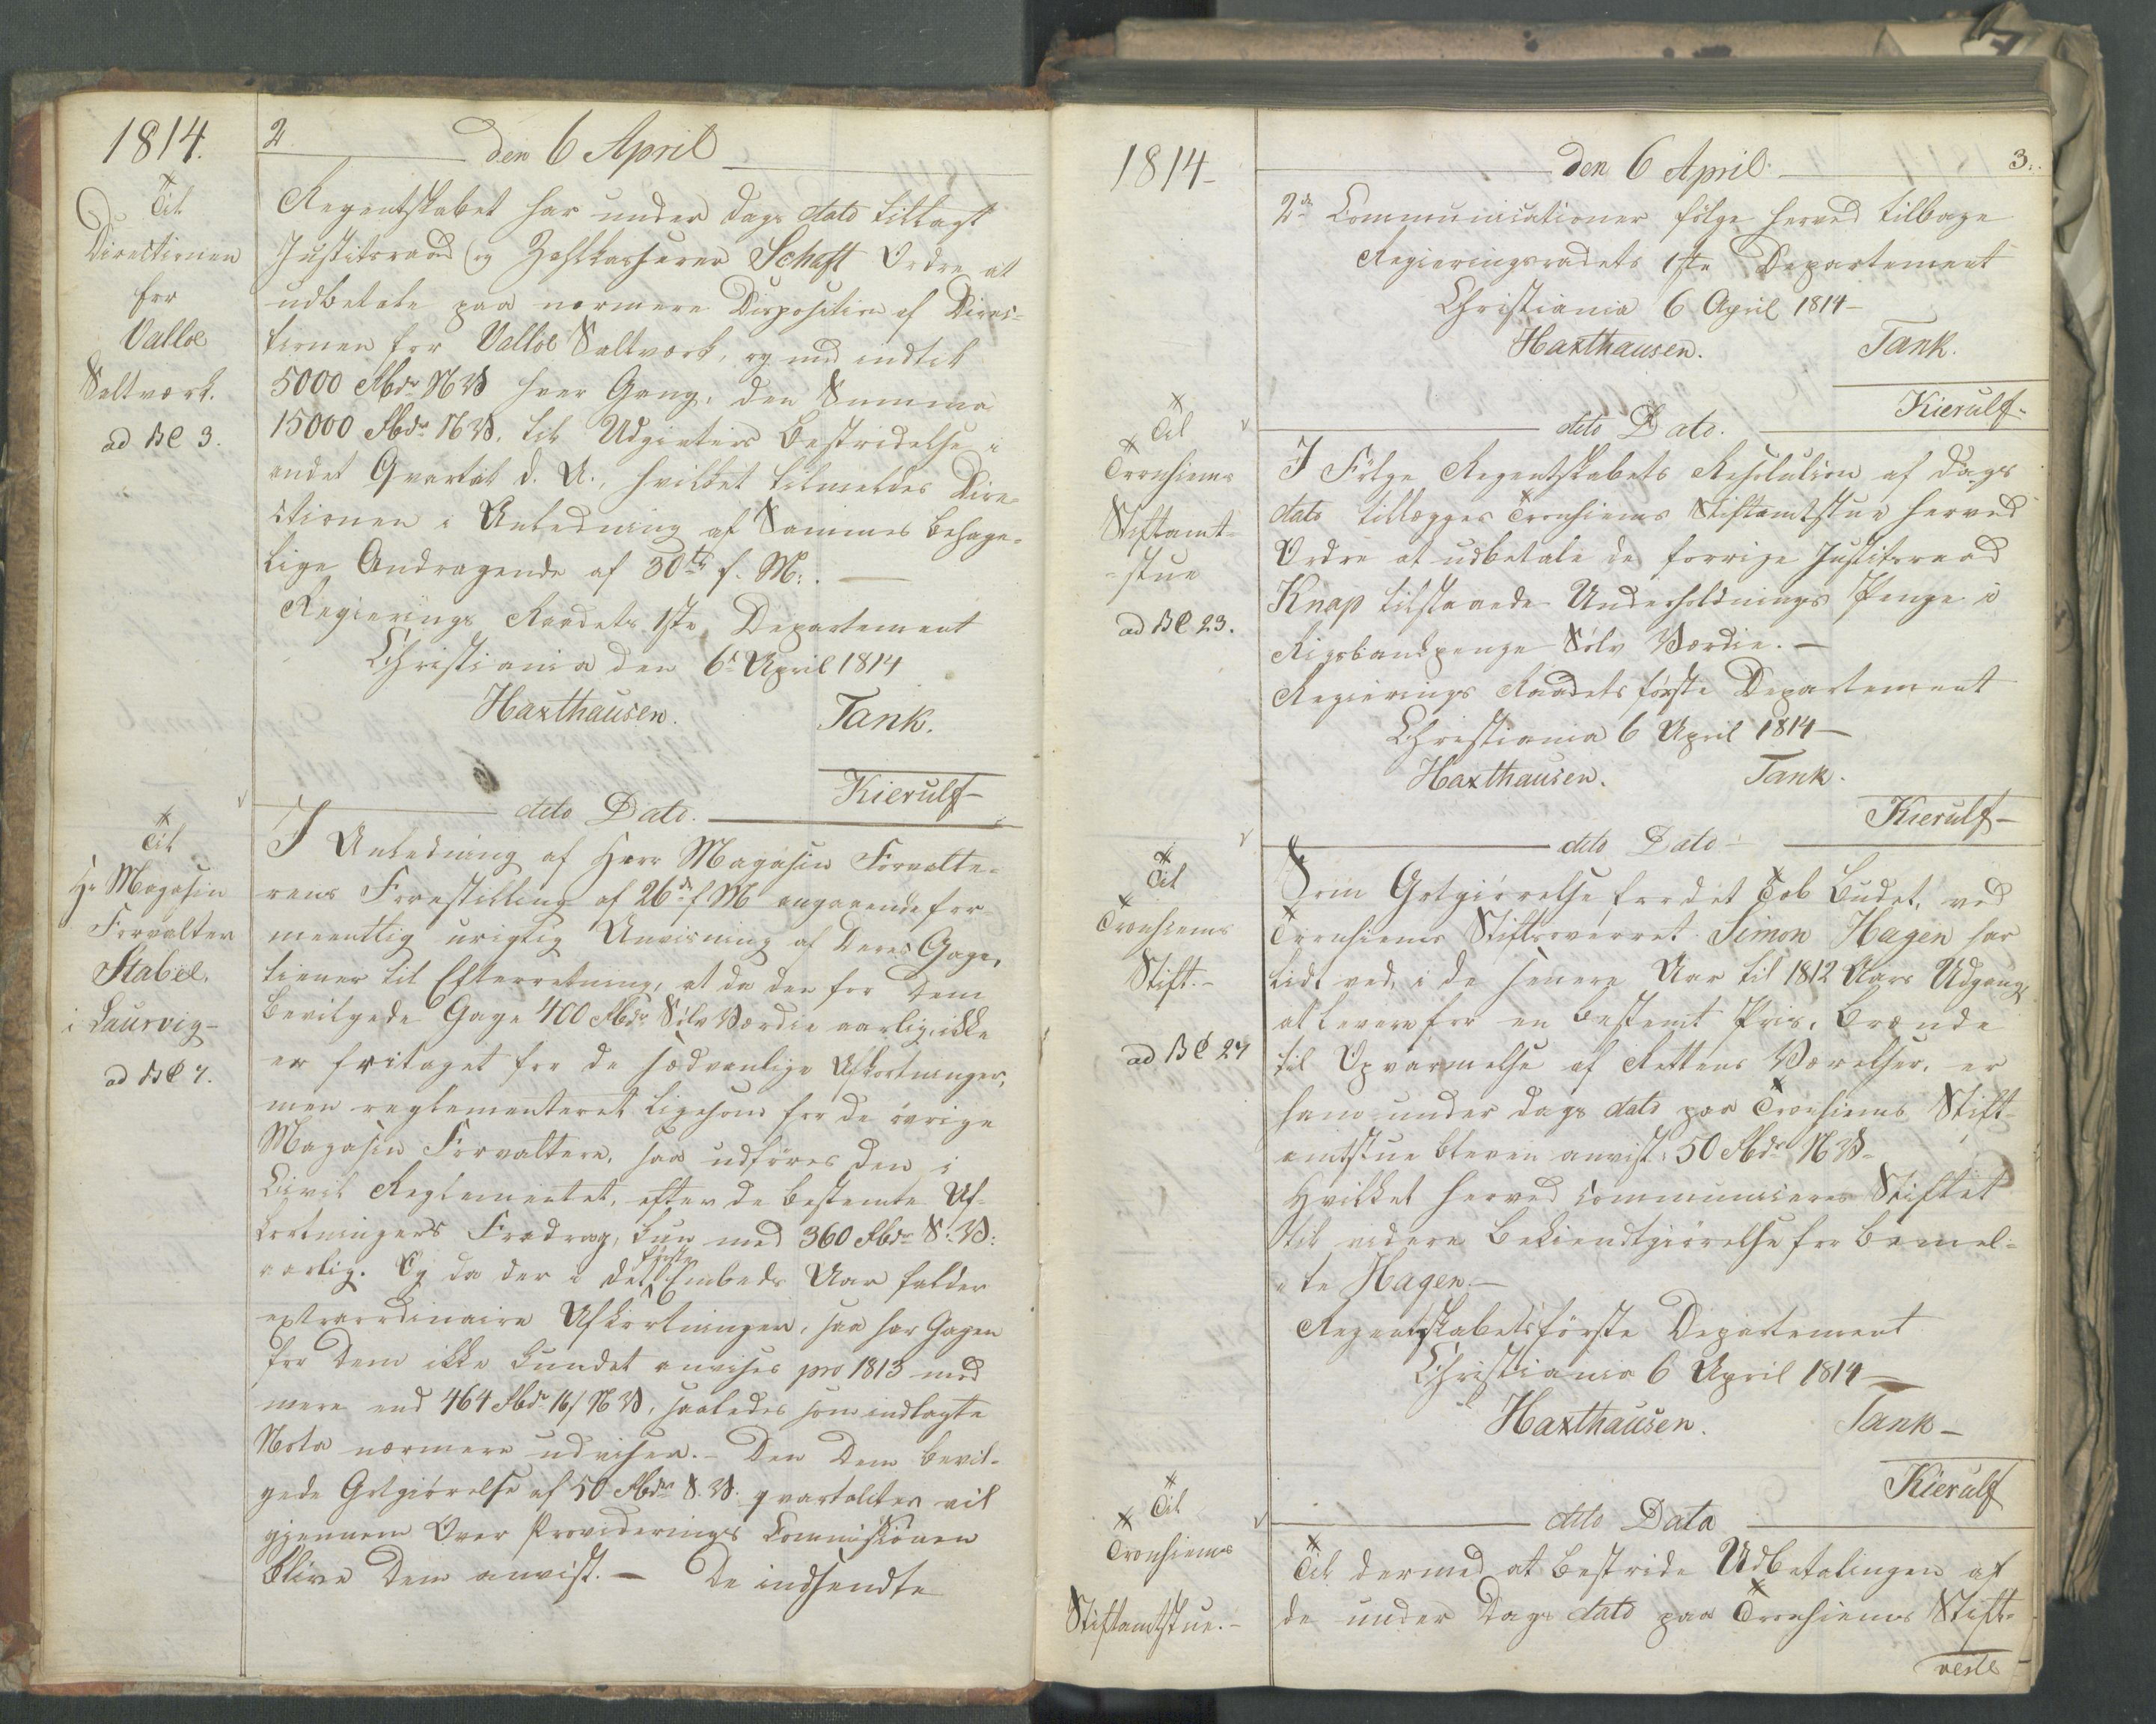 1814.
2
den 6 April
Til
Directionen
for
Valloe
Saltværk.
ad BC 3.
Regentskabet har under Dags dato tillagt
Justitsraad og Zahlkasserer Schaft Ordre at
udbetale paa nærmere Disposition af Direc-
tionen for Valløe Saltværk, og med indtil
5000 Rbdr NV hver Gang, den Summa
15000 Rbdr NV. til Udgivters Bestridelse i
andet Qvartal d. A., hvilket tilmeldes Dire-
ctionen i Anledning af Sammes behage-
lige Andragende af 30te f. M:. —
Regierings Raadets 1ste Departement
Christiania den 6te April 1814
Haxthausen. Tank.
Kierulf-
dito Dato.
Til
Hr Magasin
Forvalter
Stabel.
i Laurvig-
ad BC 7.
I Anledning af Herr Magasin Forvalte-
rens Forestilling af 26de f M angaaende for-
meentlig urigtig Anvisning af Deres Gage,
tiener til Efterretning, at da den for Dem
bevilgede Gage 400 Rbdr Sølv Værdie aarlig, ikke
er fritaget for de sædvanlige Afkortninger,
men reglementeret ligesom for de øvrige
Magasin Forvaltere, saa udføres den i
Civil Reglementet, efter de bestemte Af-
kortningers Fradrag, kun med 360 Rbdr S: V:
aarlig. Og da der i det første Embeds Aar falder
extraordinaire Afkortninger, saa har Gagen
for Dem ikke kundet anvises pro 1813 med
mere end 464 Rbdr 16/ NV, saaledes som indlagte
Nota nærmere udviser. - Den Dem bevil-
gede Godtgiørelse af 50 Rbdr S. V. qvartaliter vil
gjennem Over Providerings Commissionen
blive Dem anvist. — De indsendte
1814-
den 6 April.
3.
2de Communicationer følge herved tilbage
Regieringsraadets 1ste Departement
Christiania 6 April 1814-
Haxthausen. Tank.
Kierulf-
dito Dato.
Til
Tronhiems
Stiftamt-
-stue
ad BC 23.
I Følge Regentskabets Resolution af Dags
dato tillægges Tronhiems Stiftamtstue herved
Ordre at udbetale de forrige Justitsraad
Knap tilstaaede Underholdnings Penge i
Rigsbankpenge Sølv Værdie. —
Regierings Raadets første Departement
Christiania 6 April 1814 —
Haxthausen. Tank.
Kierulf-
dito Dato-
Til
Tronhiems
Stift.-
ad BC 27
Som Godtgiørelse for det Tab Budet, ved
Tronhiems Stiftsoverret Simon Hagen har
lidt ved, i de senere Aar til 1812 Aars Udgang,
at levere for en bestemt Priis, Brænde
til Opvarmelse af Rettens Værelser, er
ham under Dags dato paa Tronhiems Stift-
amtstue bleven anvist: 50 Rbdr NV-
Hvilket herved communiceres Stiftet
til videre Bekiendtgiørelse for bemel-
te Hagen.—
Regentskabets første Departement
Christiania 6 April 1814 —
Haxthausen. Tank-
Kierulf
dito Dato
Til
Tronhiems
Stiftamtstue.-
Til dermed at bestride Udbetalingen af
de under Dags dato paa Tronhiems Stift-